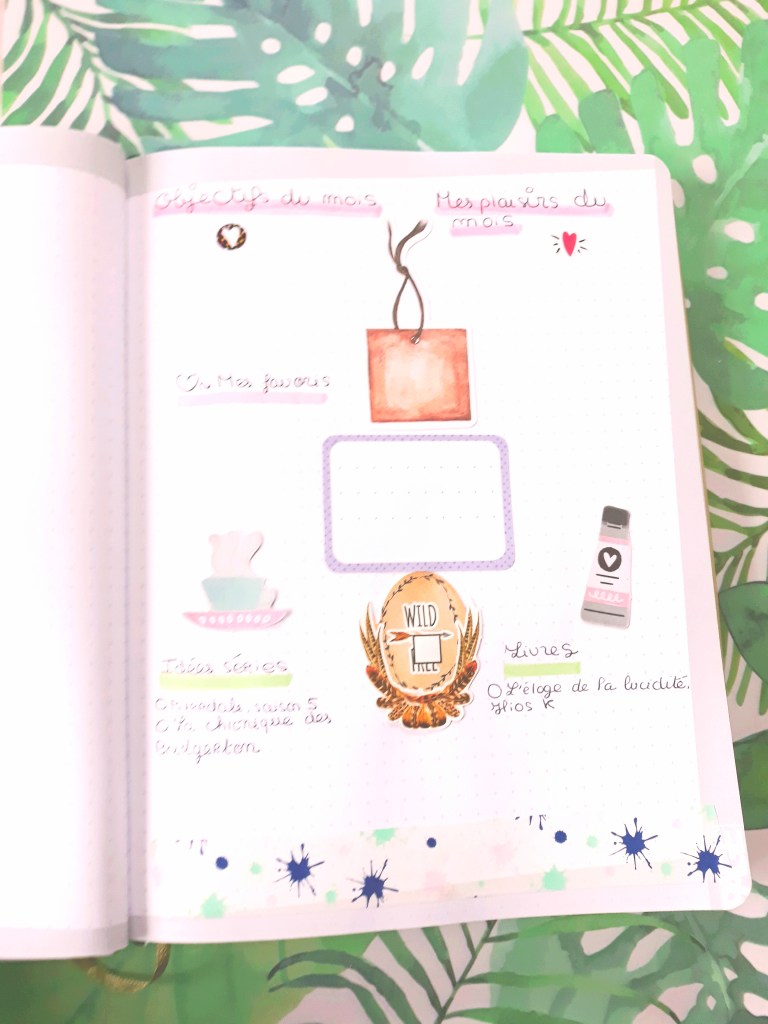 Objectifs du mois
Mes plaisirs du
mois
Mes favoris
WILD
FREE
Idées séries
Riverdale, saison 5
La chronique des
Bridgerton
Livres
L'éloge de la lucidité,
Ilios K